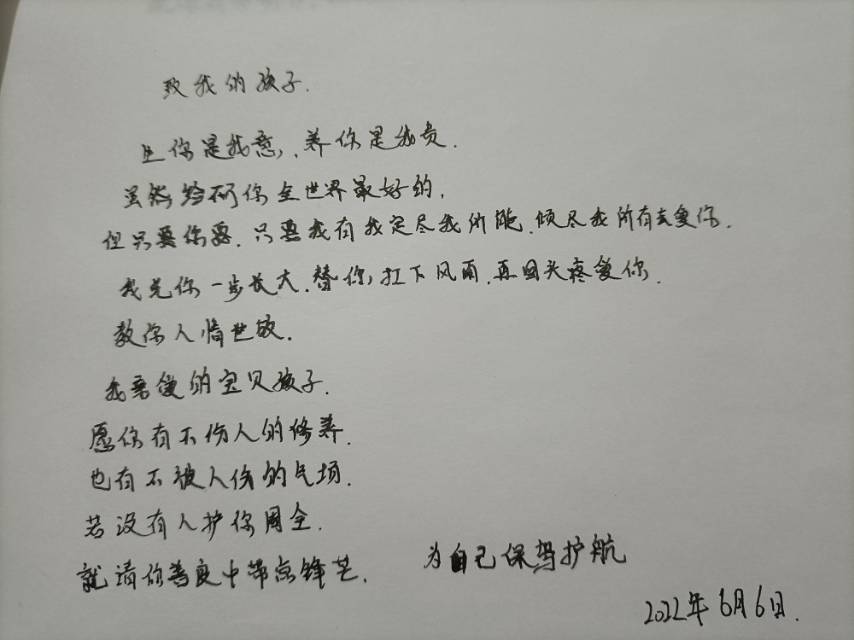 致我的孩子.
生你是我意,养你是我责.
虽然给不了你全世界最好的,
但只要你要.只要我有我定尽我所能.倾尽我所有去爱你.
我先你一步长大.替你扛下风雨.再回头疼爱你.
教你人情世故.
我亲爱的宝贝孩子.
愿你有不伤人的修养.
也有不被人伤的气场.
若没有人护你周全.
就请你善良中带点锋芒.
为自己保驾护航
2022年6月6日.